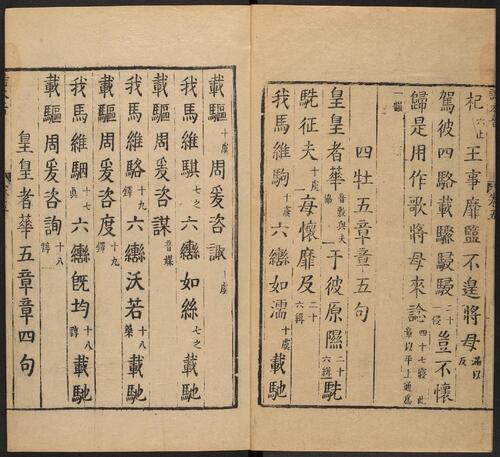 杞六止王事靡盬不遑將母滿以反
駕彼四駱載驟駸駸二十一侵豈不懷
歸是用作歌將母來諗四十七寑此章以平上通爲
一韻
四牡五章章五句
皇皇者華音敷與夫協于彼原隰二十六緝駪
駪征夫十虞每懷靡及二十六緝
我馬維駒十虞六轡如濡十虞載馳
載驅十虞周爰咨諏十虞
我馬維騏七之六轡如絲七之載馳
載驅周爰咨謀音媒
我馬維駱十九鐸六轡沃若十八藥載馳
載驅周爰咨度十九鐸
我馬維駰十七眞六轡既均十八諄載馳
載驅周爰咨詢十八諄
皇皇者華五章章四句